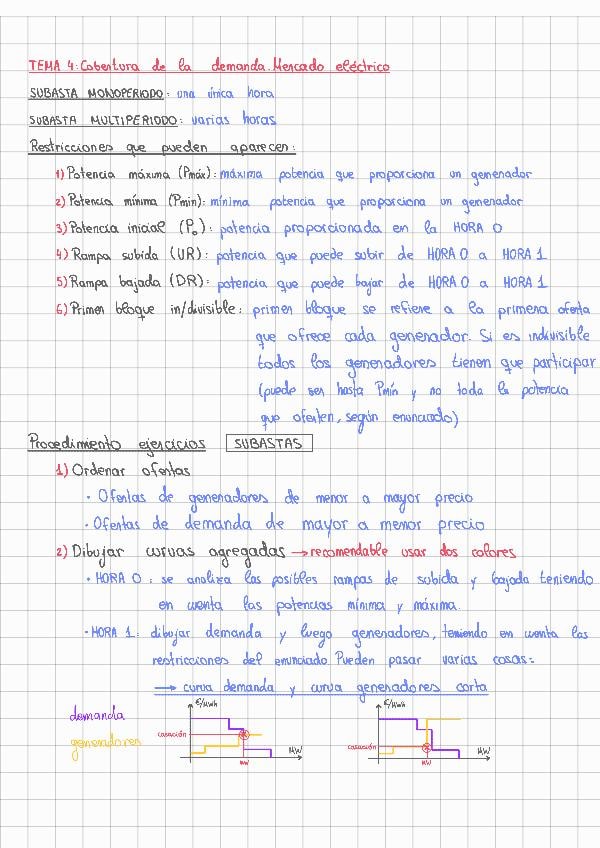 TEMA 4: Cobertura de la demanda. Mercado eléctrico
SUBASTA MONOPERIODO: una única hora
SUBASTA MULTIPERIODO: varias horas
Restricciones que pueden aparecer:
1) Potencia máxima (Pmáx): máxima potencia que proporciona un generador
2) Potencia mínima (Pmin): mínima potencia que proporciona un generador
3) Potencia inicial (P₀): potencia proporcionada en la HORA 0
4) Rampa subida (UR): potencia que puede subir de HORA 0 a HORA 1
5) Rampa bajada (DR): potencia que puede bajar de HORA 0 a HORA 1
6) Primer bloque in/divisible: primer bloque se refiere a la primera oferta
que ofrece cada generador. Si es indivisible
todos los generadores tienen que participar
(puede ser hasta Pmín y no toda la potencia
que oferten, según enunciado)
Procedimiento ejercicios SUBASTAS
1) Ordenar ofertas
· Ofertas de generadores de menor a mayor precio
· Ofertas de demanda de mayor a menor precio
2) Dibujar curvas agregadas → recomendable usar dos colores
· HORA 0: se analiza las posibles rampas de subida y bajada teniendo
en cuenta las potencias mínima y máxima.
· HORA 1: dibujar demanda y luego generadores, teniendo en cuenta las
restricciones del enunciado. Pueden pasar varias cosas:
→ curva demanda y curva generadores corta
demanda
generadores
€/MWh
casación
MW
MW
€/MWh
casación
MW
MW